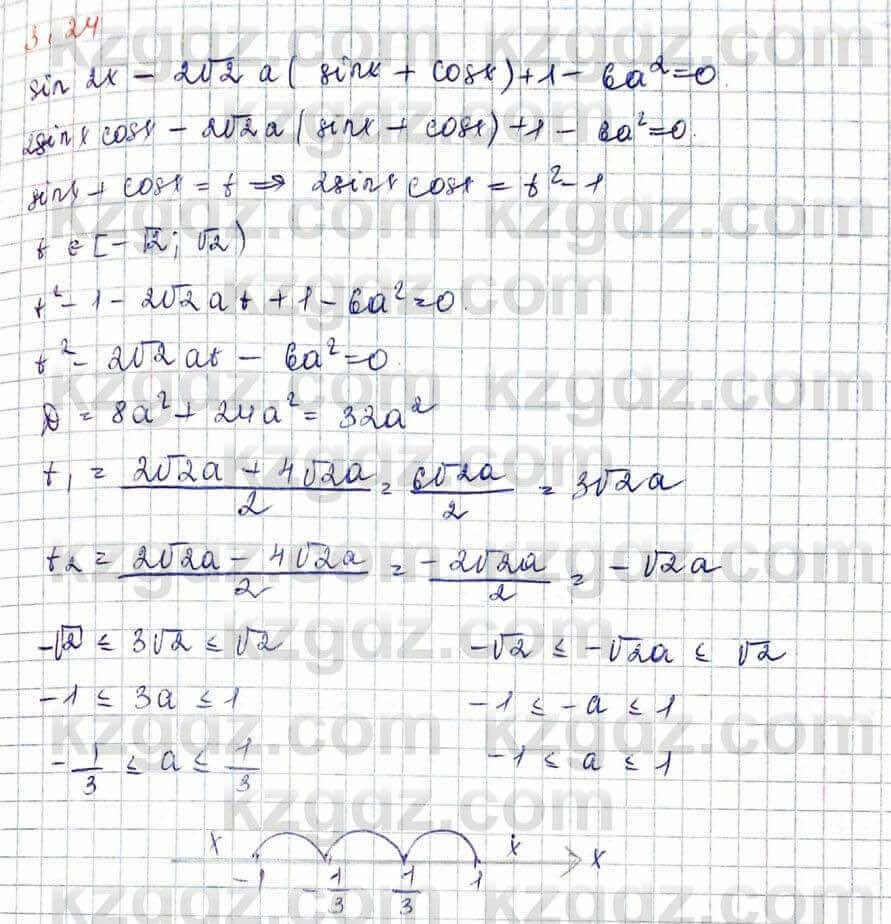 3.24
sin 2x - 2√2 a ( sinx + cosx) + 1 - 6a² = 0.
2sinx cosx - 2√2 a ( sinx + cosx) + 1 - 6a² = 0.
sinx + cosx = t ⇒ 2sinx cosx = t² - 1
t ∈ [-√2; √2)
t² - 1 - 2√2 a t + 1 - 6a² = 0.
t² - 2√2 at - 6a² = 0.
D = 8a² + 24a² = 32a²
t₁ = (2√2a + 4√2a)/2 = 6√2a/2 = 3√2a
t₂ = (2√2a - 4√2a)/2 = -2√2a/2 = -√2a
-√2 ≤ 3√2 ≤ √2 -√2 ≤ -√2a ≤ √2
-1 ≤ 3a ≤ 1 -1 ≤ -a ≤ 1
-1/3 ≤ a ≤ 1/3 -1 ≤ a ≤ 1
x x x
-1 -1/3 1/3 1
kzgdz.com